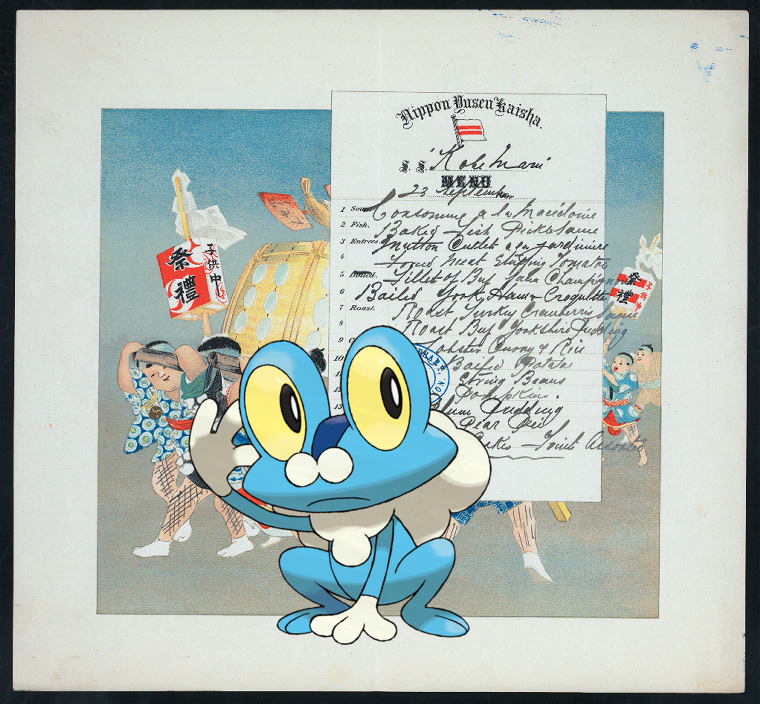 Nippon Yusen Kaisha.
S.S. "Kobe Maru"
MENU
23 September
1 Soup Consomme a la Macedoine
2 Fish. Baked Fish Pickle Sauce
3 Entrees. Mutton Cutlet a la Jardiniere
4 Forced Meat Stuffing Tomatoe
5 Boiled. Fillet of Beef Champignon
6 Boiled York Ham & Croquette
7 Roast. Roast Turkey Cranberry Sauce
8 Roast Beef Yorkshire Pudding
9 Lobster Curry & Rice
10 Boiled Potatoe
String Beans
Pumpkins.
13 Plum Pudding
Pear Pie
Cakes
祭禮
子供中
祭禮
子供